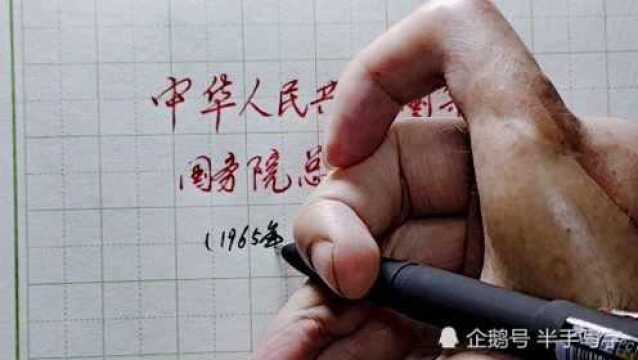 中华人民共
国务院总
(1965年
企鹅号 半手写字